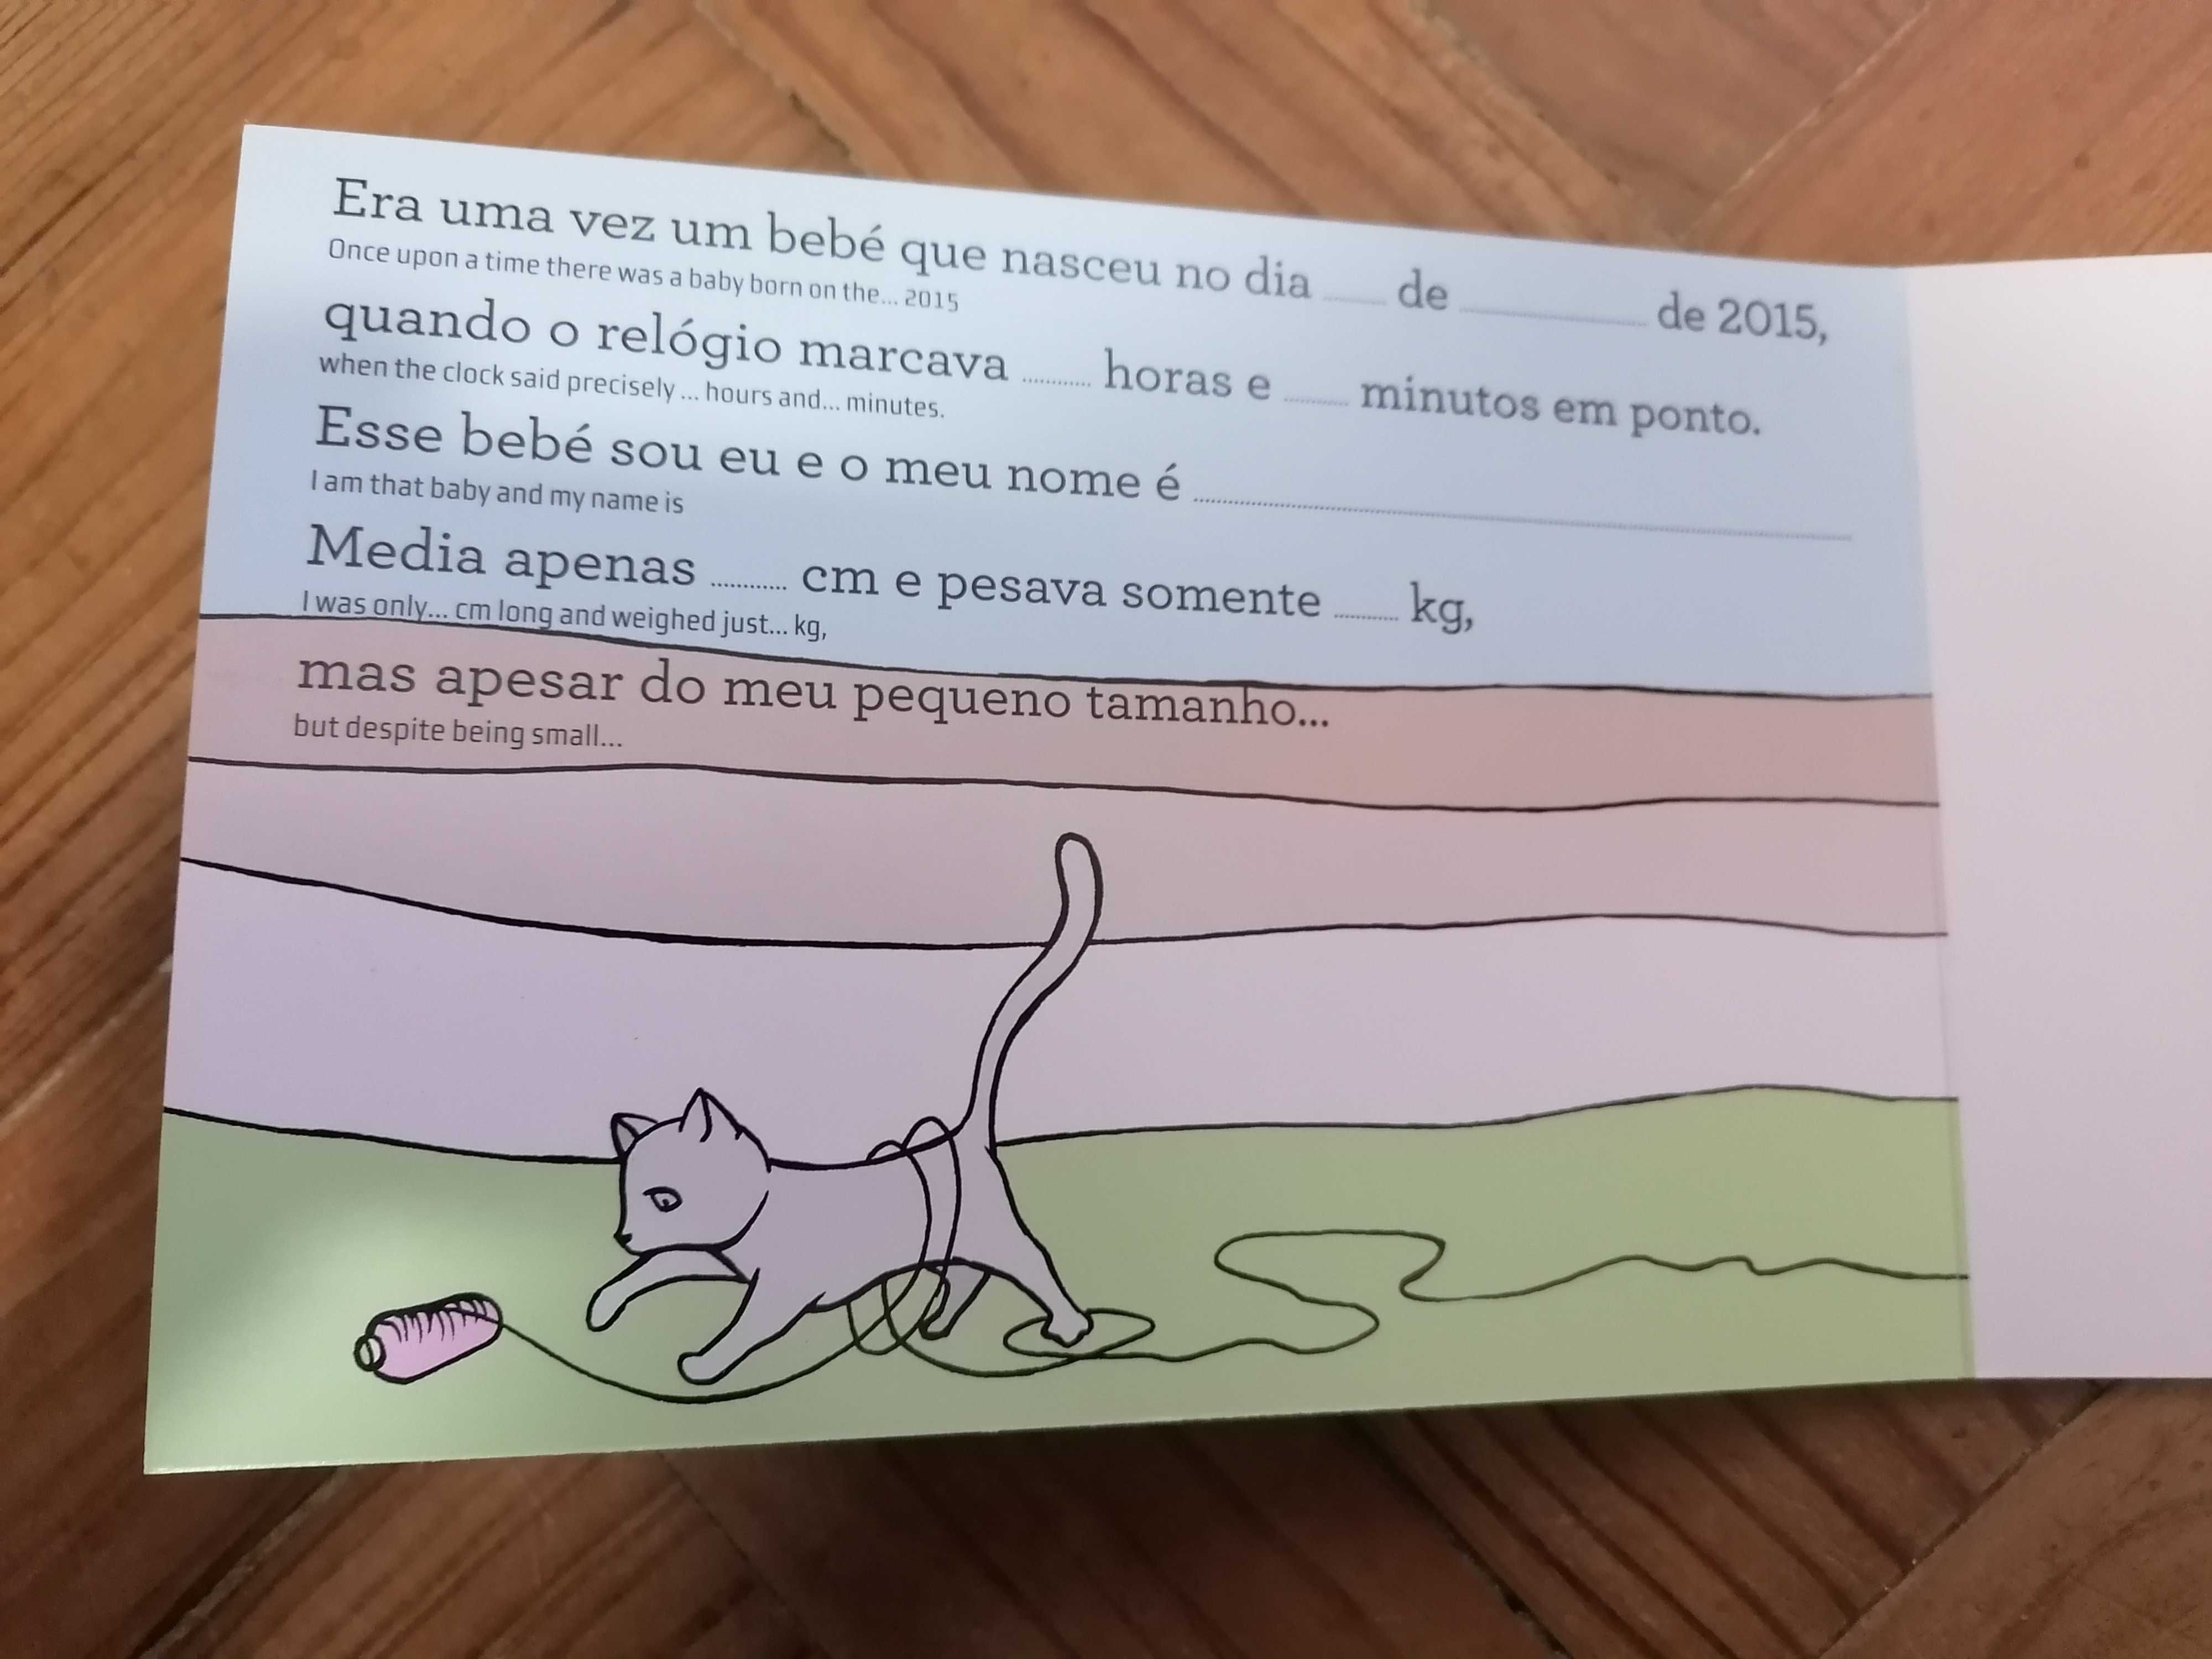 Era uma vez um bebé que nasceu no dia ...... de .................. de 2015,
Once upon a time there was a baby born on the... 2015
quando o relógio marcava ........... horas e ........ minutos em ponto.
when the clock said precisely ... hours and... minutes.
Esse bebé sou eu e o meu nome é ......................................................
I am that baby and my name is
Media apenas ............ cm e pesava somente .......... kg,
I was only... cm long and weighed just... kg,
mas apesar do meu pequeno tamanho...
but despite being small...